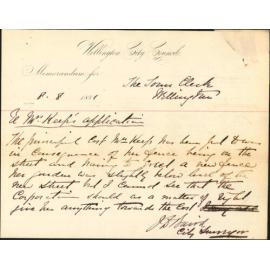 Wellington City Council
Memorandum for
The Town Clerk
8 - 8 1891
Wellington
Re Mrs Keep's application
The principal cost Mrs Keep has been put to was
in consequence of her fence being on the
street and having to erect a new fence
her garden was slightly below level of the
new street but I cannot see that the
Corporation should as a matter of right
give her anything towards the cost
City Surveyor